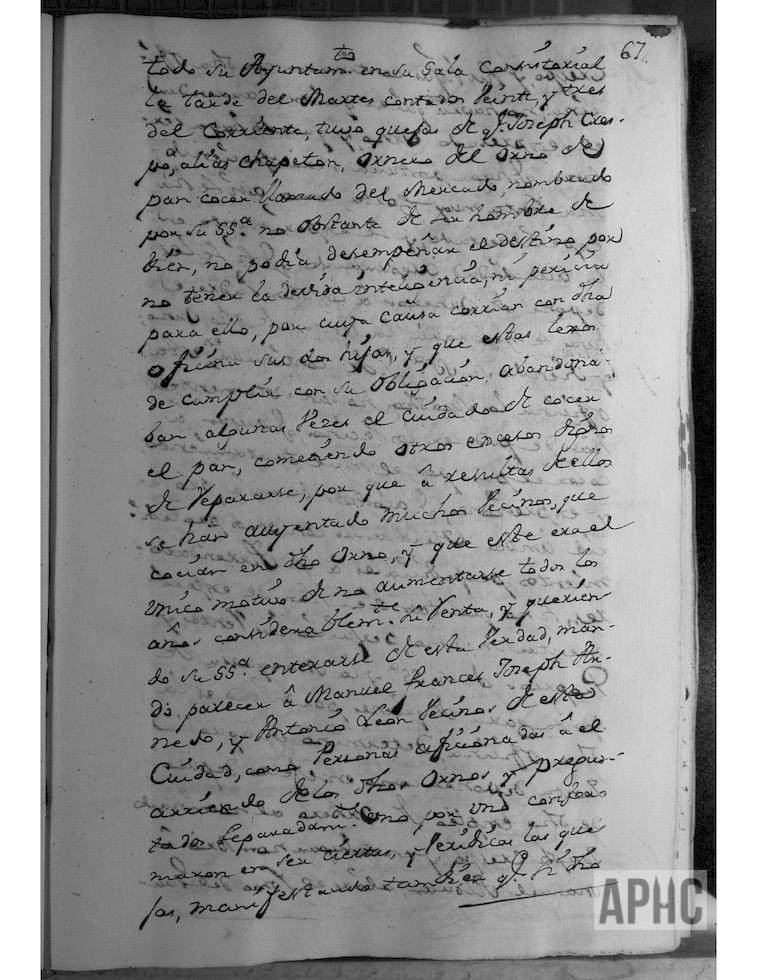 67.
todo su Ayuntamto. en su Sala Consistorial
la tarde del Martes contados Veinte, y tres
del Corriente, tuvo quejas de qe. Joseph Cres-
po, alias chapeton, ornero del orno de
pan cocer llamado del Mercado, nombrado
por su SSa. no obstante de ser hombre de
bien, no podia desempeñar el destino por
no tener la devida inteligencia, ni pericia
para ello, por cuya causa corrian con dha
oficina sus dos hijas, y que estas lexos
de cumplir con su obligacion, abandona-
ban algunas Vezes el cuidado de cocer
el pan, cometiendo otros excesos dignos
de repararse, por que â resultas de ellos
se han auyentado muchos Vecinos, que
cocian en dho orno, y que este era el
unico motivo de no aumentarse todos los
años considerablemte. su Venta, y querien-
do su SSa. enterarse de esta Verdad, man-
dó parecer â Manuel frances Joseph Ar-
nedo, y Antonio Leon Vecinos de esta
Ciudad, como Personas aficionadas â el
arriendo de los dhos ornos, y pregun-
tados separadamte. como por uno confor-
maron en ser ciertas, y Veridicas las que-
jas, manifestando tambien qe. si dho
APHC